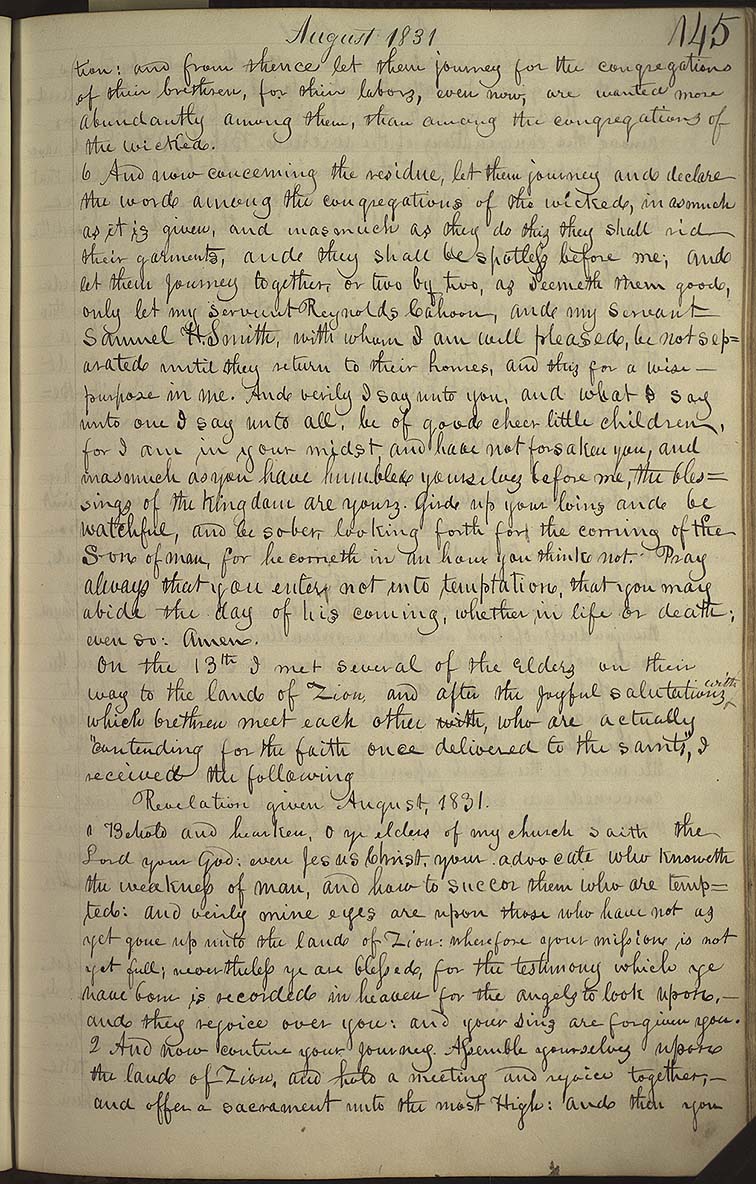 August 1831
145
tion: and from thence let them journey for the congregations
of their brethren, for their labors, even now, are wanted more
abundantly among them, than among the congregations of
the wicked.
6 And now concerning the residue, let them journey and declare
the word among the congregations of the wicked, inasmuch
as it is given, and inasmuch as they do this they shall rid
their garments, and they shall be spotless before me; and
let them journey together, or two by two, as seemeth them good,
only let my servant Reynolds Cahoon, and my servant
Samuel H. Smith, with whom I am well pleased, be not sep=
arated until they return to their homes, and this for a wise —
purpose in me. And verily I say unto you, and what I say
unto one I say unto all, be of good cheer little children,
for I am in your midst, and have not forsaken you, and
inasmuch as you have humbled yourselves before me, the bles=
sings of the kingdom are yours. Gird up your loins and be
watchful, and be sober, looking forth for the coming of the
Son of man, for he cometh in an hour you think not. Pray
always that you enter not into temptation, that you may
abide the day of his coming, whether in life or death;
even so: Amen.
On the 13th I met several of the Elders on their
way to the land of Zion, and after the joyful salutations with
which brethren meet each other with, who are actually
"contending for the faith once delivered to the saints", I
received the following
Revelation given August, 1831.
1 Behold and hearken, O ye elders of my church saith the
Lord your God: even Jesus Christ, your advocate who knoweth
the weakness of man, and how to succor them who are temp=
ted: and verily mine eyes are upon those who have not as
yet gone up unto the land of Zion: wherefore your mission is not
yet full; nevertheless ye are blessed, for the testimony which ye
have born is recorded in heaven for the angels to look upon, —
and they rejoice over you: and your sins are forgiven you.
2 And now contine your journey. Assemble yourselves upon
the land of Zion, and hold a meeting and rejoice together, —
and offer a sacrament unto the most High: and then you